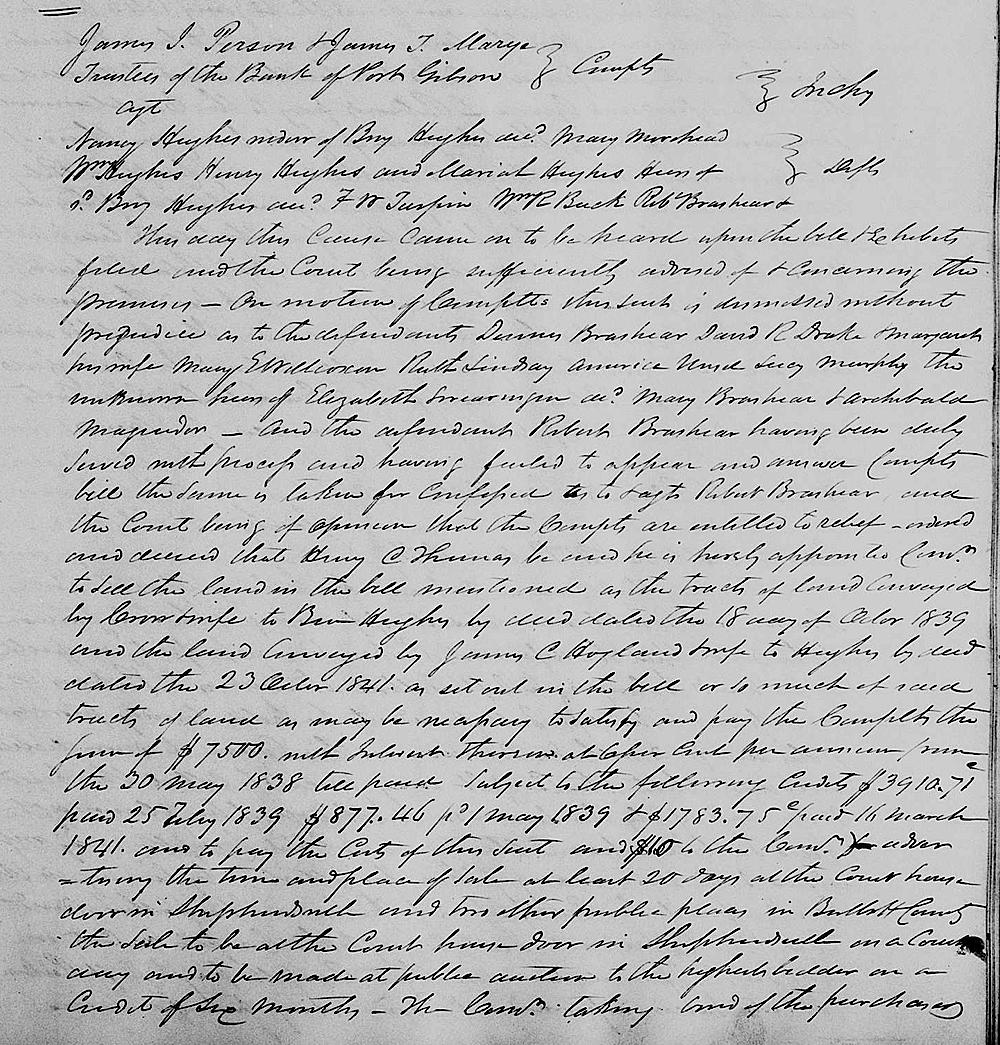 James J. Person & James T. Marye
Trustees of the Bank of Port Gibson } Complts
} In Chy
agt
Nancy Hughes widow of Benj Hughes decd. Mary Morehead
Wm Hughes Henry Hughes and Mariah Hughes Heirs of } Defts
sd. Benj Hughes decd. F W Turpin Wm R Buck Robt Brashear &
This day this Cause Came on to be heard upon the bill & Exhibits
filed and the Court being sufficiently advised of & Concerning the
premises — On motion of Complts this suit is dismissed without
prejudice as to the defendants Dennes Brashear David R Drake & Margaret
his wife Mary E Willcoxon Ruth Lindsay America Lucy Murphy the
unknown heirs of Elizabeth Swearingen decd. Mary Brashear & Archibald
Magruder — And the defendant Robert Brashear having been duly
Served with process and having failed to appear and answer Complts
bill the Same is taken for Confessed as to & agts Robert Brashear, and
the Court being of opinion that the Complts are entitled to relief — ordered
and decreed that Henry C Thomas be and he is hereby appointed Comr.
to Sell the land in the bill mentioned as the tracts of land Conveyed
by Crow & wife to Ben Hughes by deed dated the 18 day of Octor 1839
and the land Conveyed by James C Hogland & wife to Hughes by deed
dated the 23 Octor 1841. as set out in the bill or so much of said
tracts of land as may be necessary to satisfy and pay the Complts the
Sum of $7500. with Interest thereon at 6 per Cent per annum from
the 30 May 1838 till paid Subject to the following Credits $3910.71c
paid 25 Feby 1839 $877.46 pd 1 May 1839 & $1783.75c paid 16 March
1841. and to pay the Costs of this Suit and $10 to the Comr. adver
=tising the time and place of Sale at least 20 days at the Court house
door in Shepherdsville and two other public places in Bullitt County
the Sale to be at the Court house door in Shepherdsvill on a Court
day and to be made at public auction to the highest bidder on a
Credit of Six Months — The Comr. taking bond of the purchaser